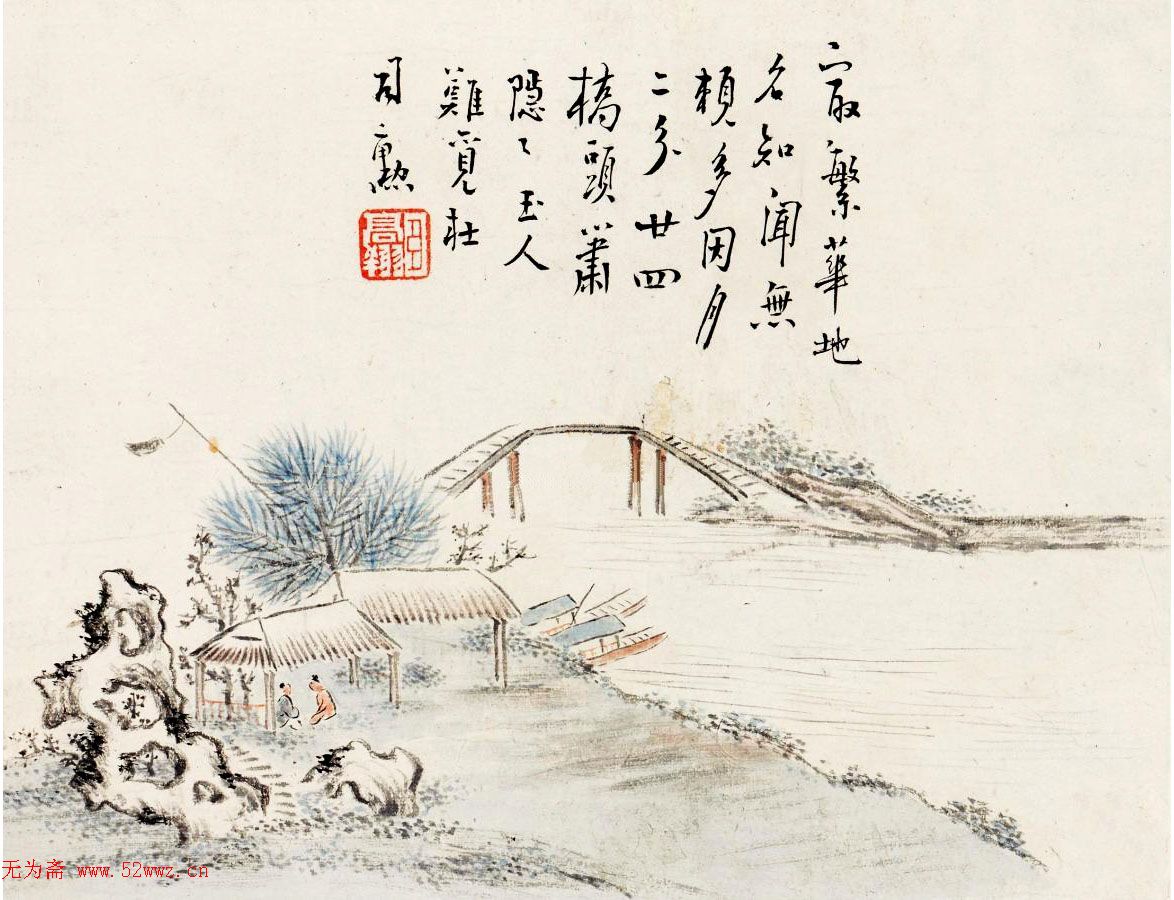 㝡繁華地
名知聞無
賴多因月
二分廿四
橋頭簫
隱々玉人
難覓杜
司勳
高翔
无为斋 www.52wwz.cn